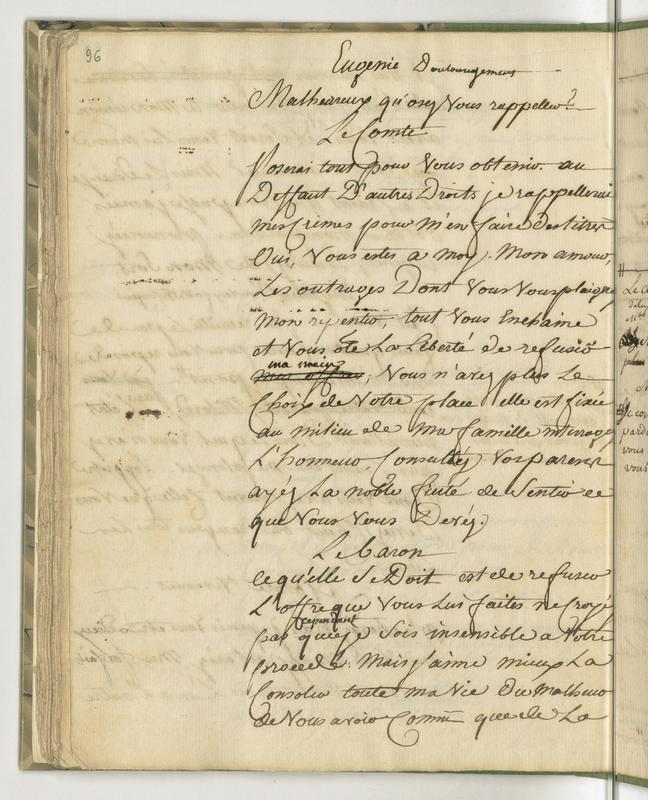 96
Eugenie Douloureusement
Malheureux qu'osez Vous rappeller?
Le Comte
J'oserai tout pour Vous obtenir. au
Deffaut D'autres Droits je rappellerai
mes Crimes pour m'en faire des titres
Oui, Vous estes a moy. Mon amour,
Les outrages Dont Vous Vous plaigne
Mon repentir, tout Vous Enchaine
et Vous ôte La Liberté de refuser
ma main
; Vous n'avez plus Le
Choix de Votre place elle est fixée
au milieu de ma famille interroge
L'honneur, Consultéz Vos parens
ayéz La noble fierté de Sentir ce
que Vous Vous Devéz.
Le baron
ce qu'elle Se Doit est de refuser
L'offre que Vous Lui faites ne croyé
cependant
pas que je Sois insensible a Votre
procédé. Mais j'aime mieux La
Consoler toute ma Vie Du Malheur
de Vous avoir Connu que de La